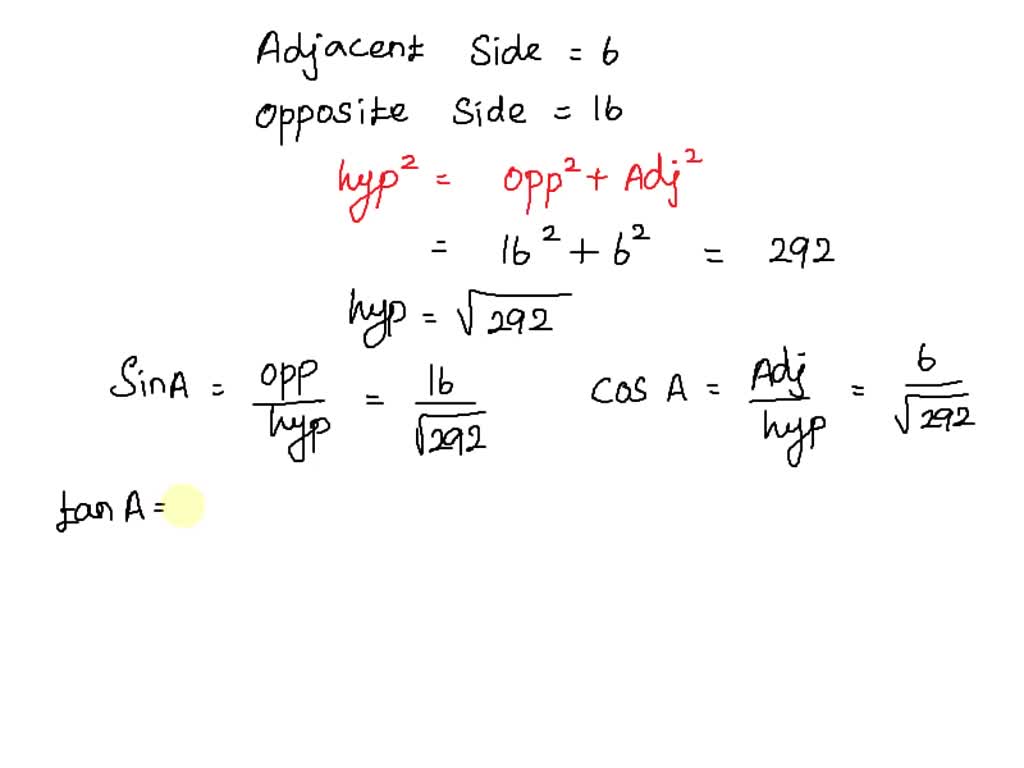 Adjacent Side = 6
Opposite Side = 16
hyp² = Opp² + Adj²
= 16² + 6² = 292
hyp = √292
Sin A = Opp/hyp = 16/√292 Cos A = Adj/hyp = 6/√292
tan A =